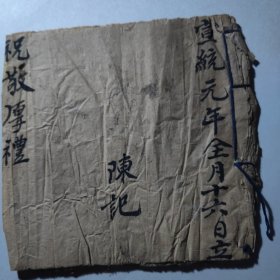 宣統元年全月十六日立
陳記
祝敬禮